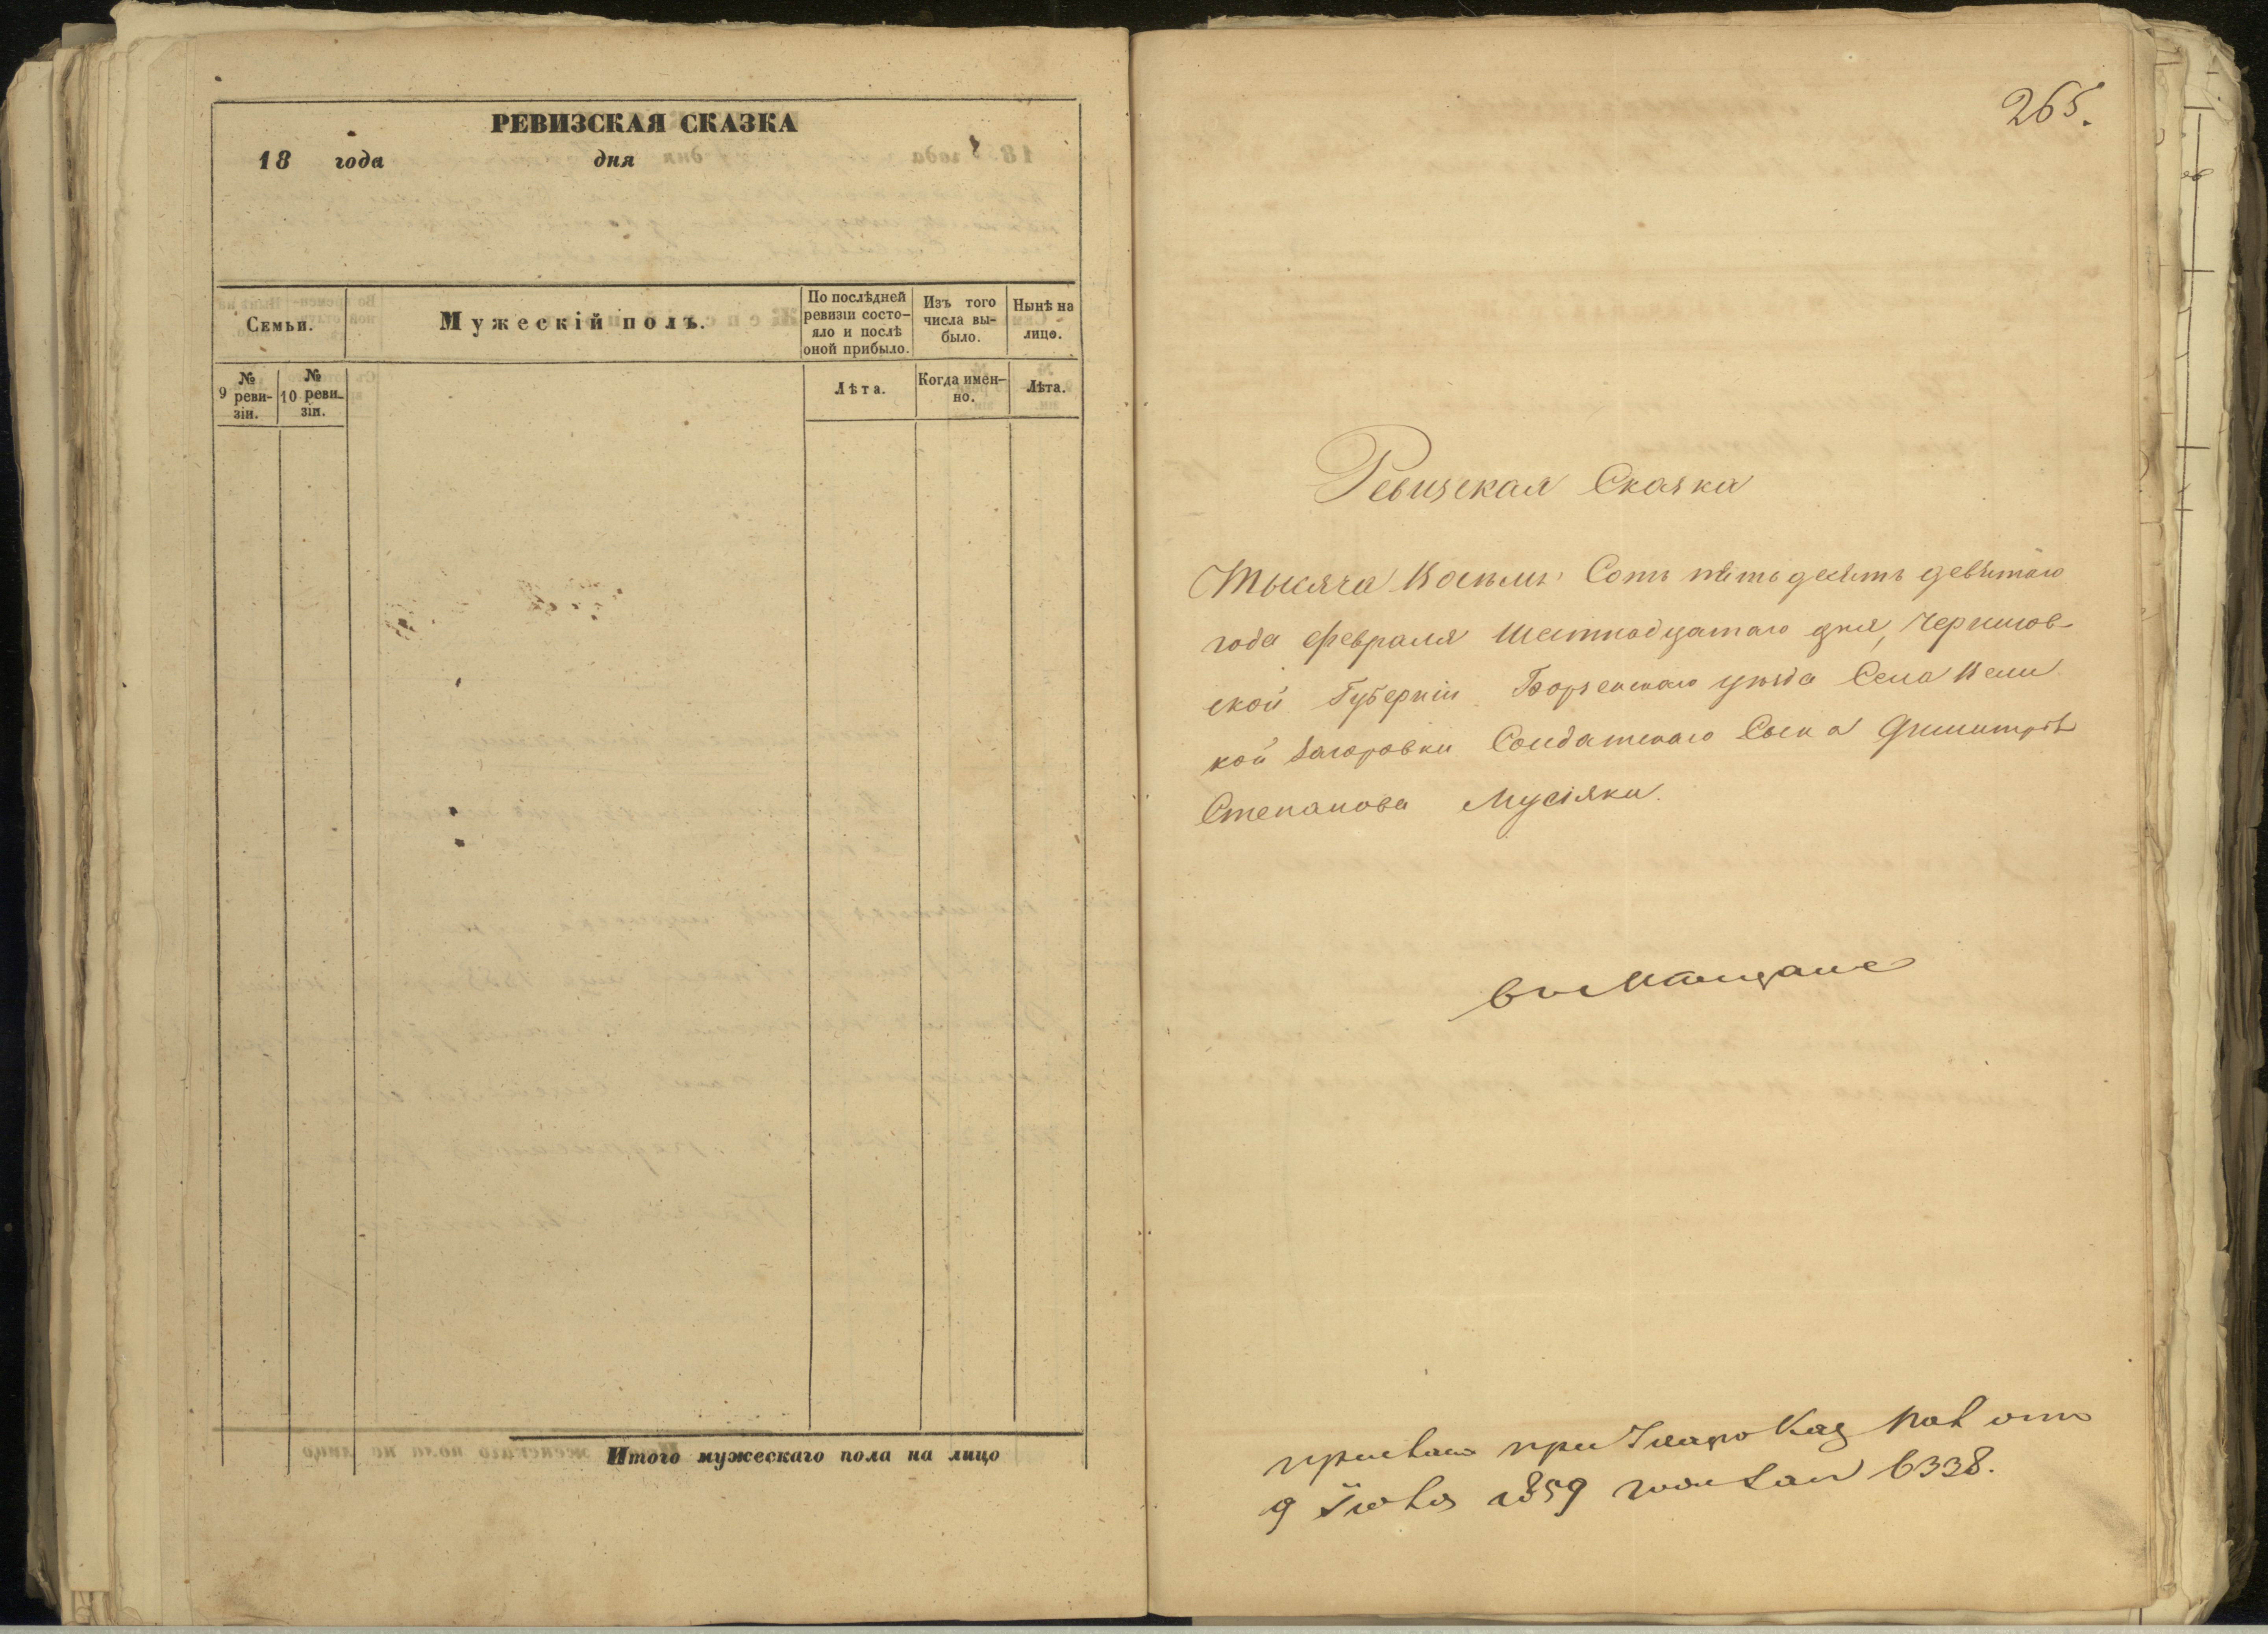 РЕВИЗСКАЯ СКАЗКА
18 года дня
Семьи.
Мужескій полъ.
По послѣдней ревизіи состо-яло и послѣ оной прибыло.
Изъ того числа вы-было.
Нынѣ на лицо.
№ 9 реви-зіи.
№ 10 реви-зіи.
Лѣта.
Когда имен-но.
Лѣта.
Итого мужескаго пола на лицо
265.
Ревизская Сказка
Тысяча Восемь Сотъ пятьдесятъ девятаго
года февраля Шестнадцатаго дня, Чернигов-
ской Губерніи Борзенскаго уѣзда Села Вели
кой Загоровки Солдатскаго Сына Димитрія
Степанова Мусіяки.
в мѣщане
при Каз Пал отъ
9 Іюля 1859 года 6338.